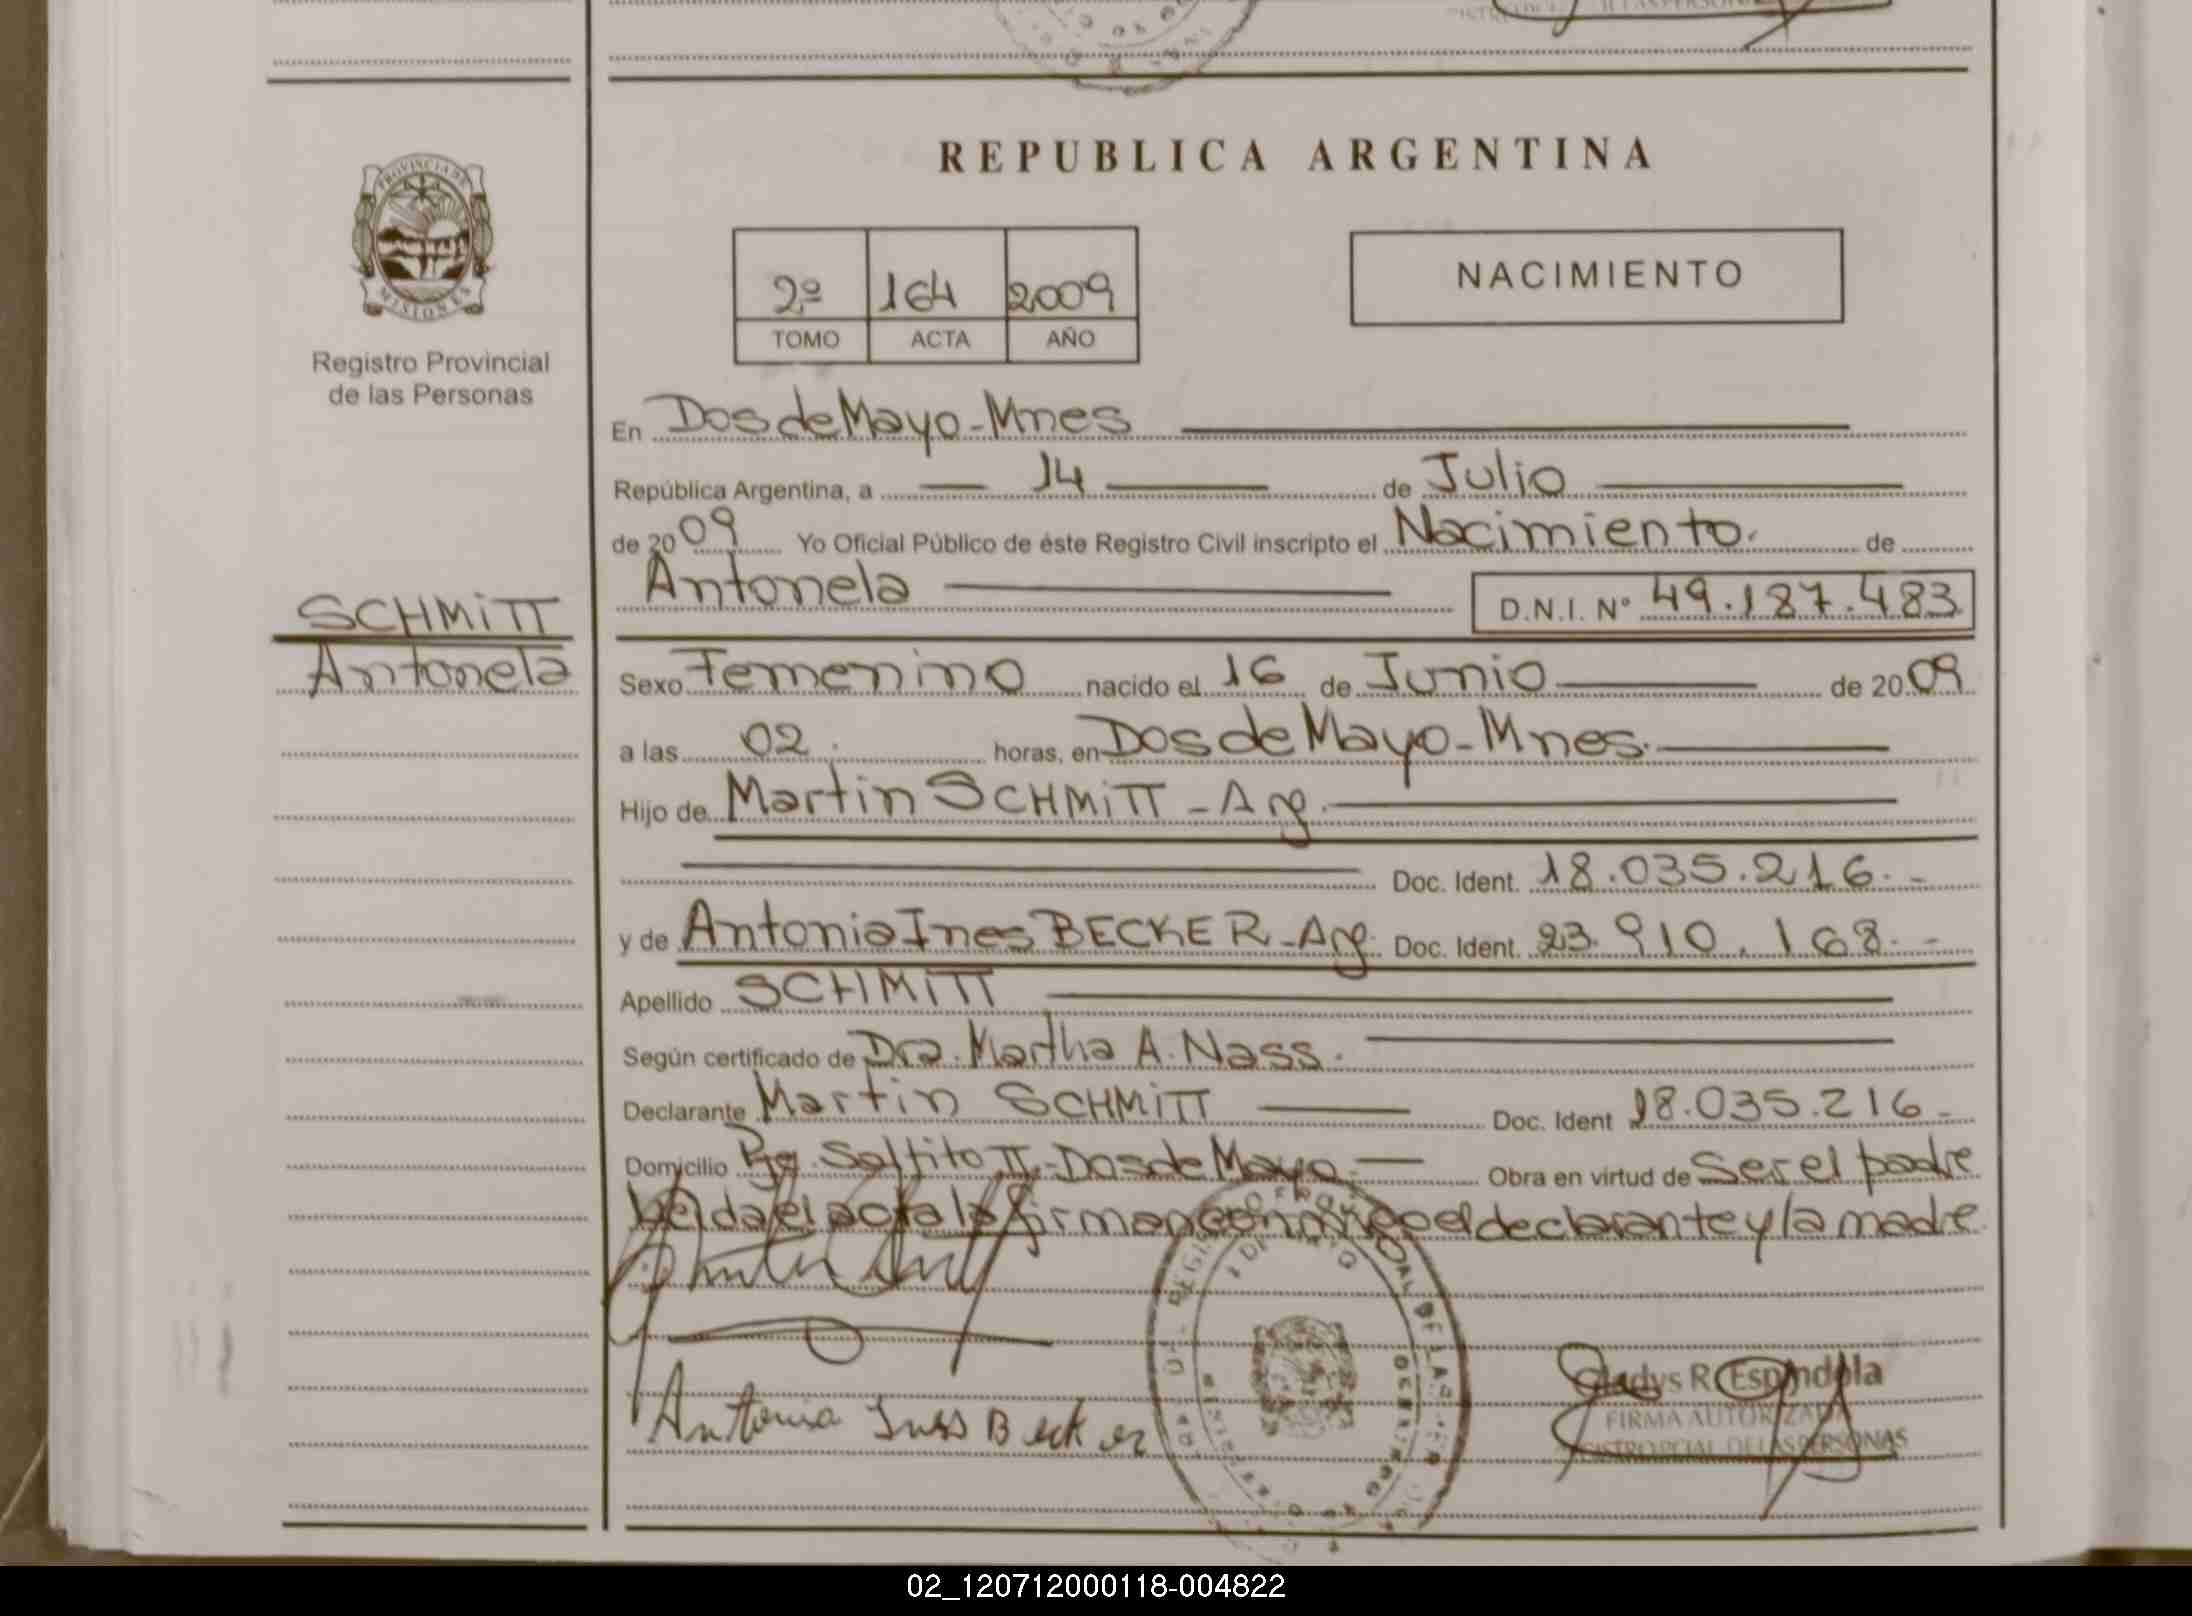 REPUBLICA ARGENTINA
PROVINCIA DE
MISIONES
Registro Provincial
de las Personas
2º 164 2009
TOMO ACTA AÑO
NACIMIENTO
En Dos de Mayo - Mnes
República Argentina, a 14 de Julio
de 2009 Yo Oficial Público de éste Registro Civil inscripto el Nacimiento. de
Antonela D.N.I. Nº 49.187.483
SCHMiTT
Antonela
Sexo Femenino nacido el 16 de Junio de 2009
a las 02. horas, en Dos de Mayo - Mnes.
Hijo de Martin SCHMiTT - Arg.
Doc. Ident. 18.035.216.-
y de Antonia Ines BECKER - Arg. Doc. Ident. 23.910.168.-
Apellido SCHMiTT
Según certificado de Dra. Martha A. Nass.
Declarante Martin SCHMiTT Doc. Ident 18.035.216-
Domicilio Pje. Saltito II - Dos de Mayo. Obra en virtud de Ser el padre
Leida el acta la firman conmigo el declarante y la madre
Antonia Ines Becker
Gladys R. Espindola
FIRMA AUTORIZADA
REGISTRO PCIAL. DE LAS PERSONAS
02_120712000118-004822